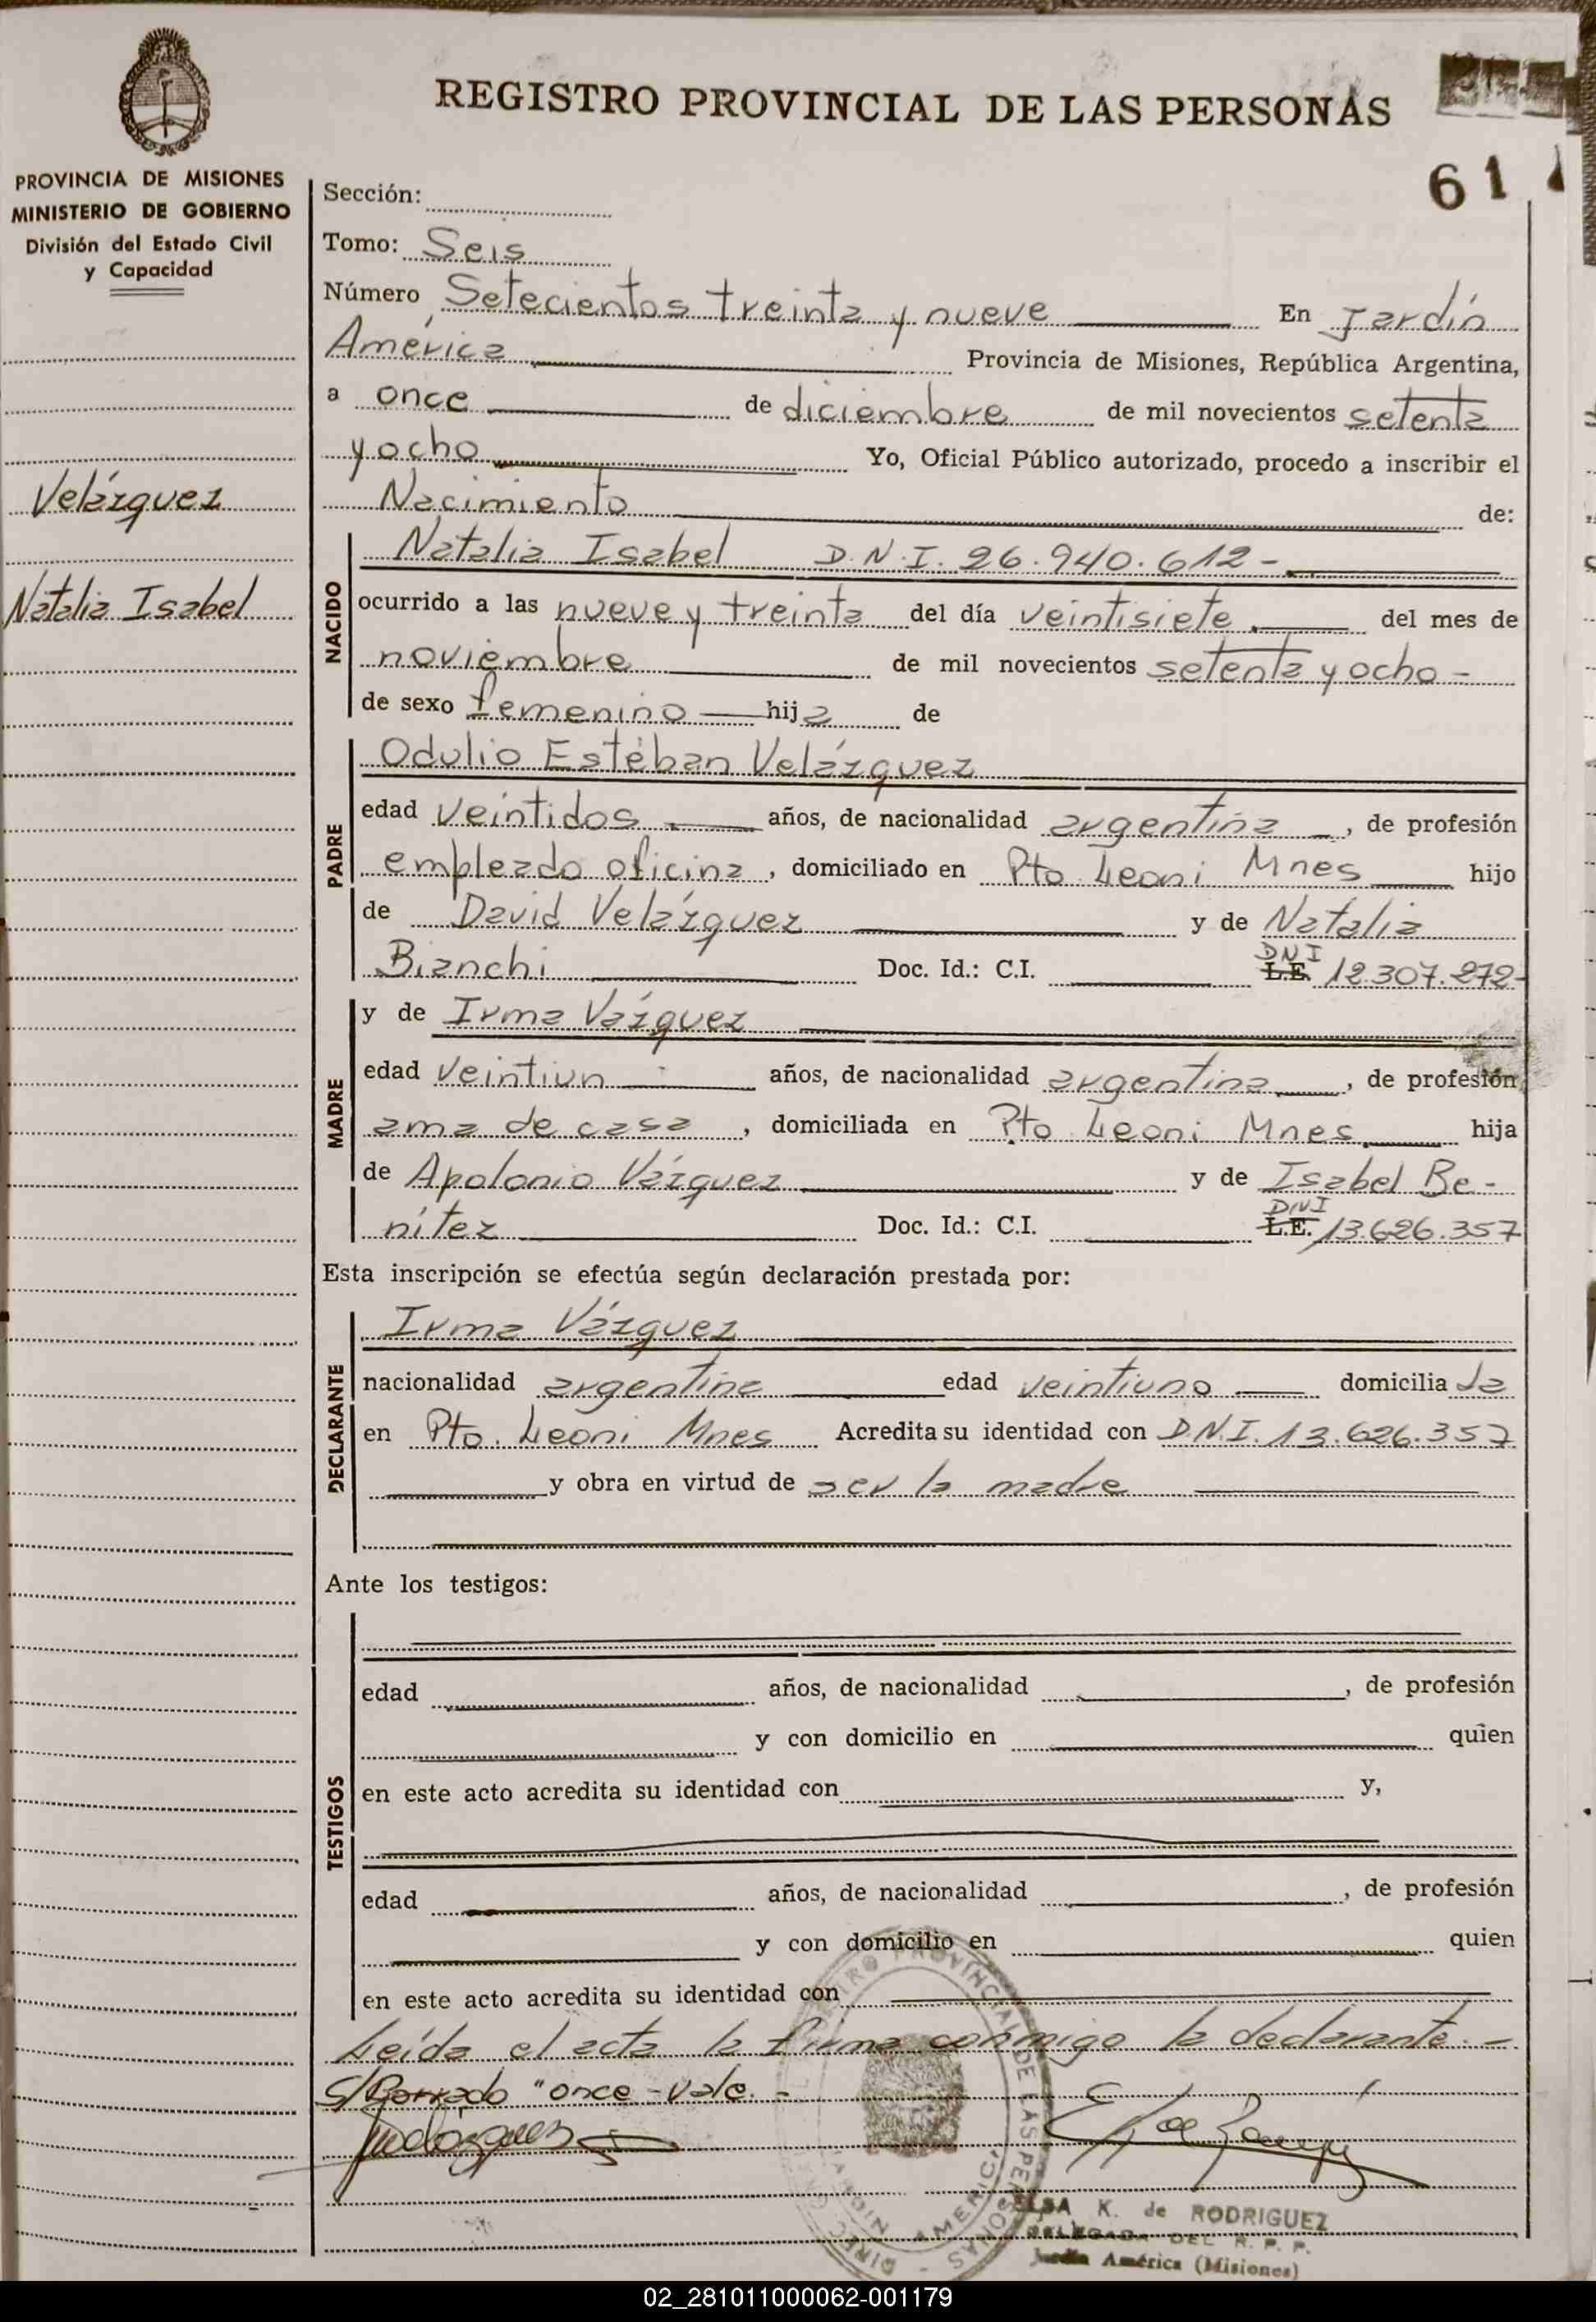 REGISTRO PROVINCIAL DE LAS PERSONAS
61
PROVINCIA DE MISIONES
MINISTERIO DE GOBIERNO
División del Estado Civil
y Capacidad
Velázquez
Natalia Isabel
Sección:
Tomo: Seis
Número Setecientos treinta y nueve En Jardín
América Provincia de Misiones, República Argentina,
a once de diciembre de mil novecientos setenta
y ocho Yo, Oficial Público autorizado, procedo a inscribir el
Nacimiento de:
NACIDO
Natalia Isabel D.N.I. 26.940.612-
ocurrido a las nueve y treinta del día veintisiete del mes de
noviembre de mil novecientos setenta y ocho -
de sexo femenino hija de
PADRE
Odulio Estéban Velázquez
edad veintidos años, de nacionalidad argentina, de profesión
empleado oficina, domiciliado en Pto Leoni Mnes hijo
de David Velázquez y de Natalia
Bianchi Doc. Id.: C.I. L.E. DNI 12.307.272-
MADRE
y de Irma Vázquez
edad veintiun años, de nacionalidad argentina, de profesión
ama de casa, domiciliada en Pto Leoni Mnes. hija
de Apolonio Vázquez y de Isabel Be-
nítez Doc. Id.: C.I. L.E. DNI 13.626.357
Esta inscripción se efectúa según declaración prestada por:
DECLARANTE
Irma Vázquez
nacionalidad argentina edad veintiuno domiciliada
en Pto. Leoni Mnes Acredita su identidad con D.N.I. 13.626.357
y obra en virtud de ser la madre
Ante los testigos:
TESTIGOS
edad años, de nacionalidad , de profesión
y con domicilio en quien
en este acto acredita su identidad con y,
edad años, de nacionalidad , de profesión
y con domicilio en quien
en este acto acredita su identidad con
Leída el acta la firma conmigo la declarante.-
S/Borrado "once - vale. -
ELSA K. de RODRIGUEZ
DELEGADA DEL R. P. P.
Jardín América (Misiones)
02_281011000062-001179